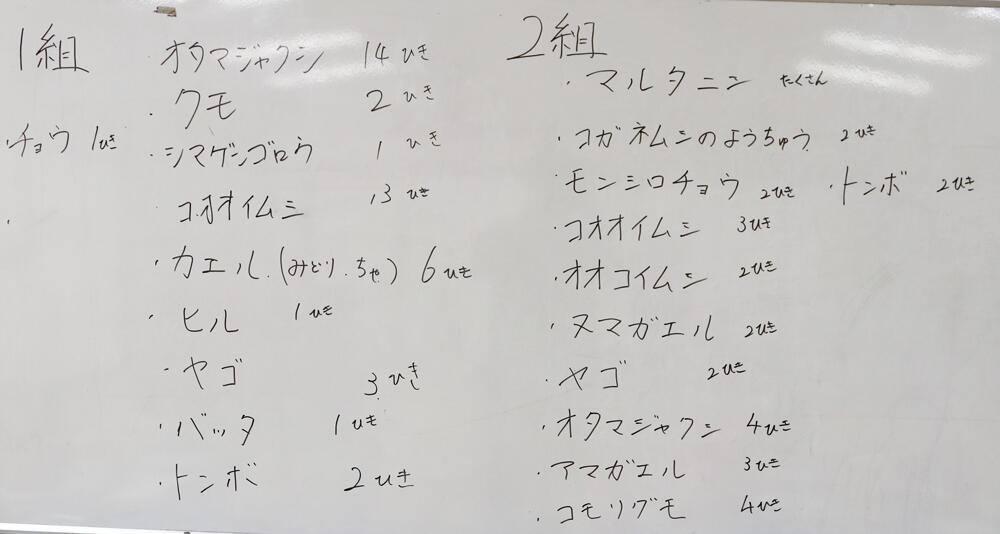 1組
・チョウ 1ぴき
オタマジャクシ 14ひき
・クモ 2ひき
・シマゲンゴロウ 1ひき
コオオイムシ 13ひき
・カエル.(みどり.ちゃ) 6ひき
・ヒル 1ひき
・ヤゴ 3ひき
・バッタ 1ひき
・トンボ 2ひき
2組
・マルタニシ たくさん
・コガネムシのようちゅう 2ひき
・モンシロチョウ 2ひき ・トンボ 2ひき
・コオオイムシ 3ひき
・オオコイムシ 2ひき
・ヌマガエル 2ひき
・ヤゴ 2ひき
・オタマジャクシ 4ひき
・アマガエル 3ひき
・コモリグモ 4ひき